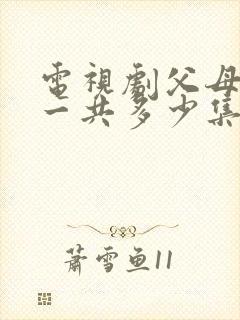 電視劇父母
一共多少集
蕭雪鱼11